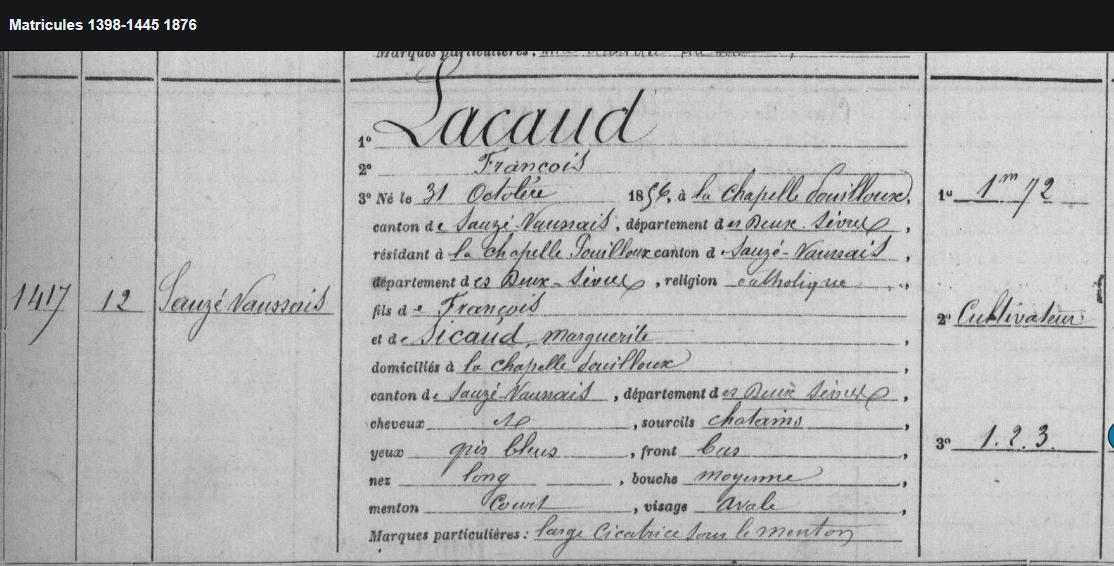 Matricules 1398-1445 1876
Marques particulières :
1º Lacaud
2º François
3º Né le 31 Octobre 1856, à la Chapelle Pouilloux,
canton de Sauzé-Vaussais, département des Deux-Sèvres,
résidant à la Chapelle Pouilloux canton de Sauzé-Vaussais,
département des Deux-Sèvres, religion catholique,
fils de François
et de Sicaud, Marguerite,
domiciliés à la Chapelle Pouilloux,
canton de Sauzé-Vaussais, département des Deux Sèvres,
cheveux, sourcils chatains,
yeux gris bleus, front bas,
nez long, bouche moyenne,
menton Court, visage ovale,
Marques particulières : large Cicatrice sous le menton
1417
12
Sauzé Vaussais
1º 1m 72
2º Cultivateur
3º 1. 2. 3.